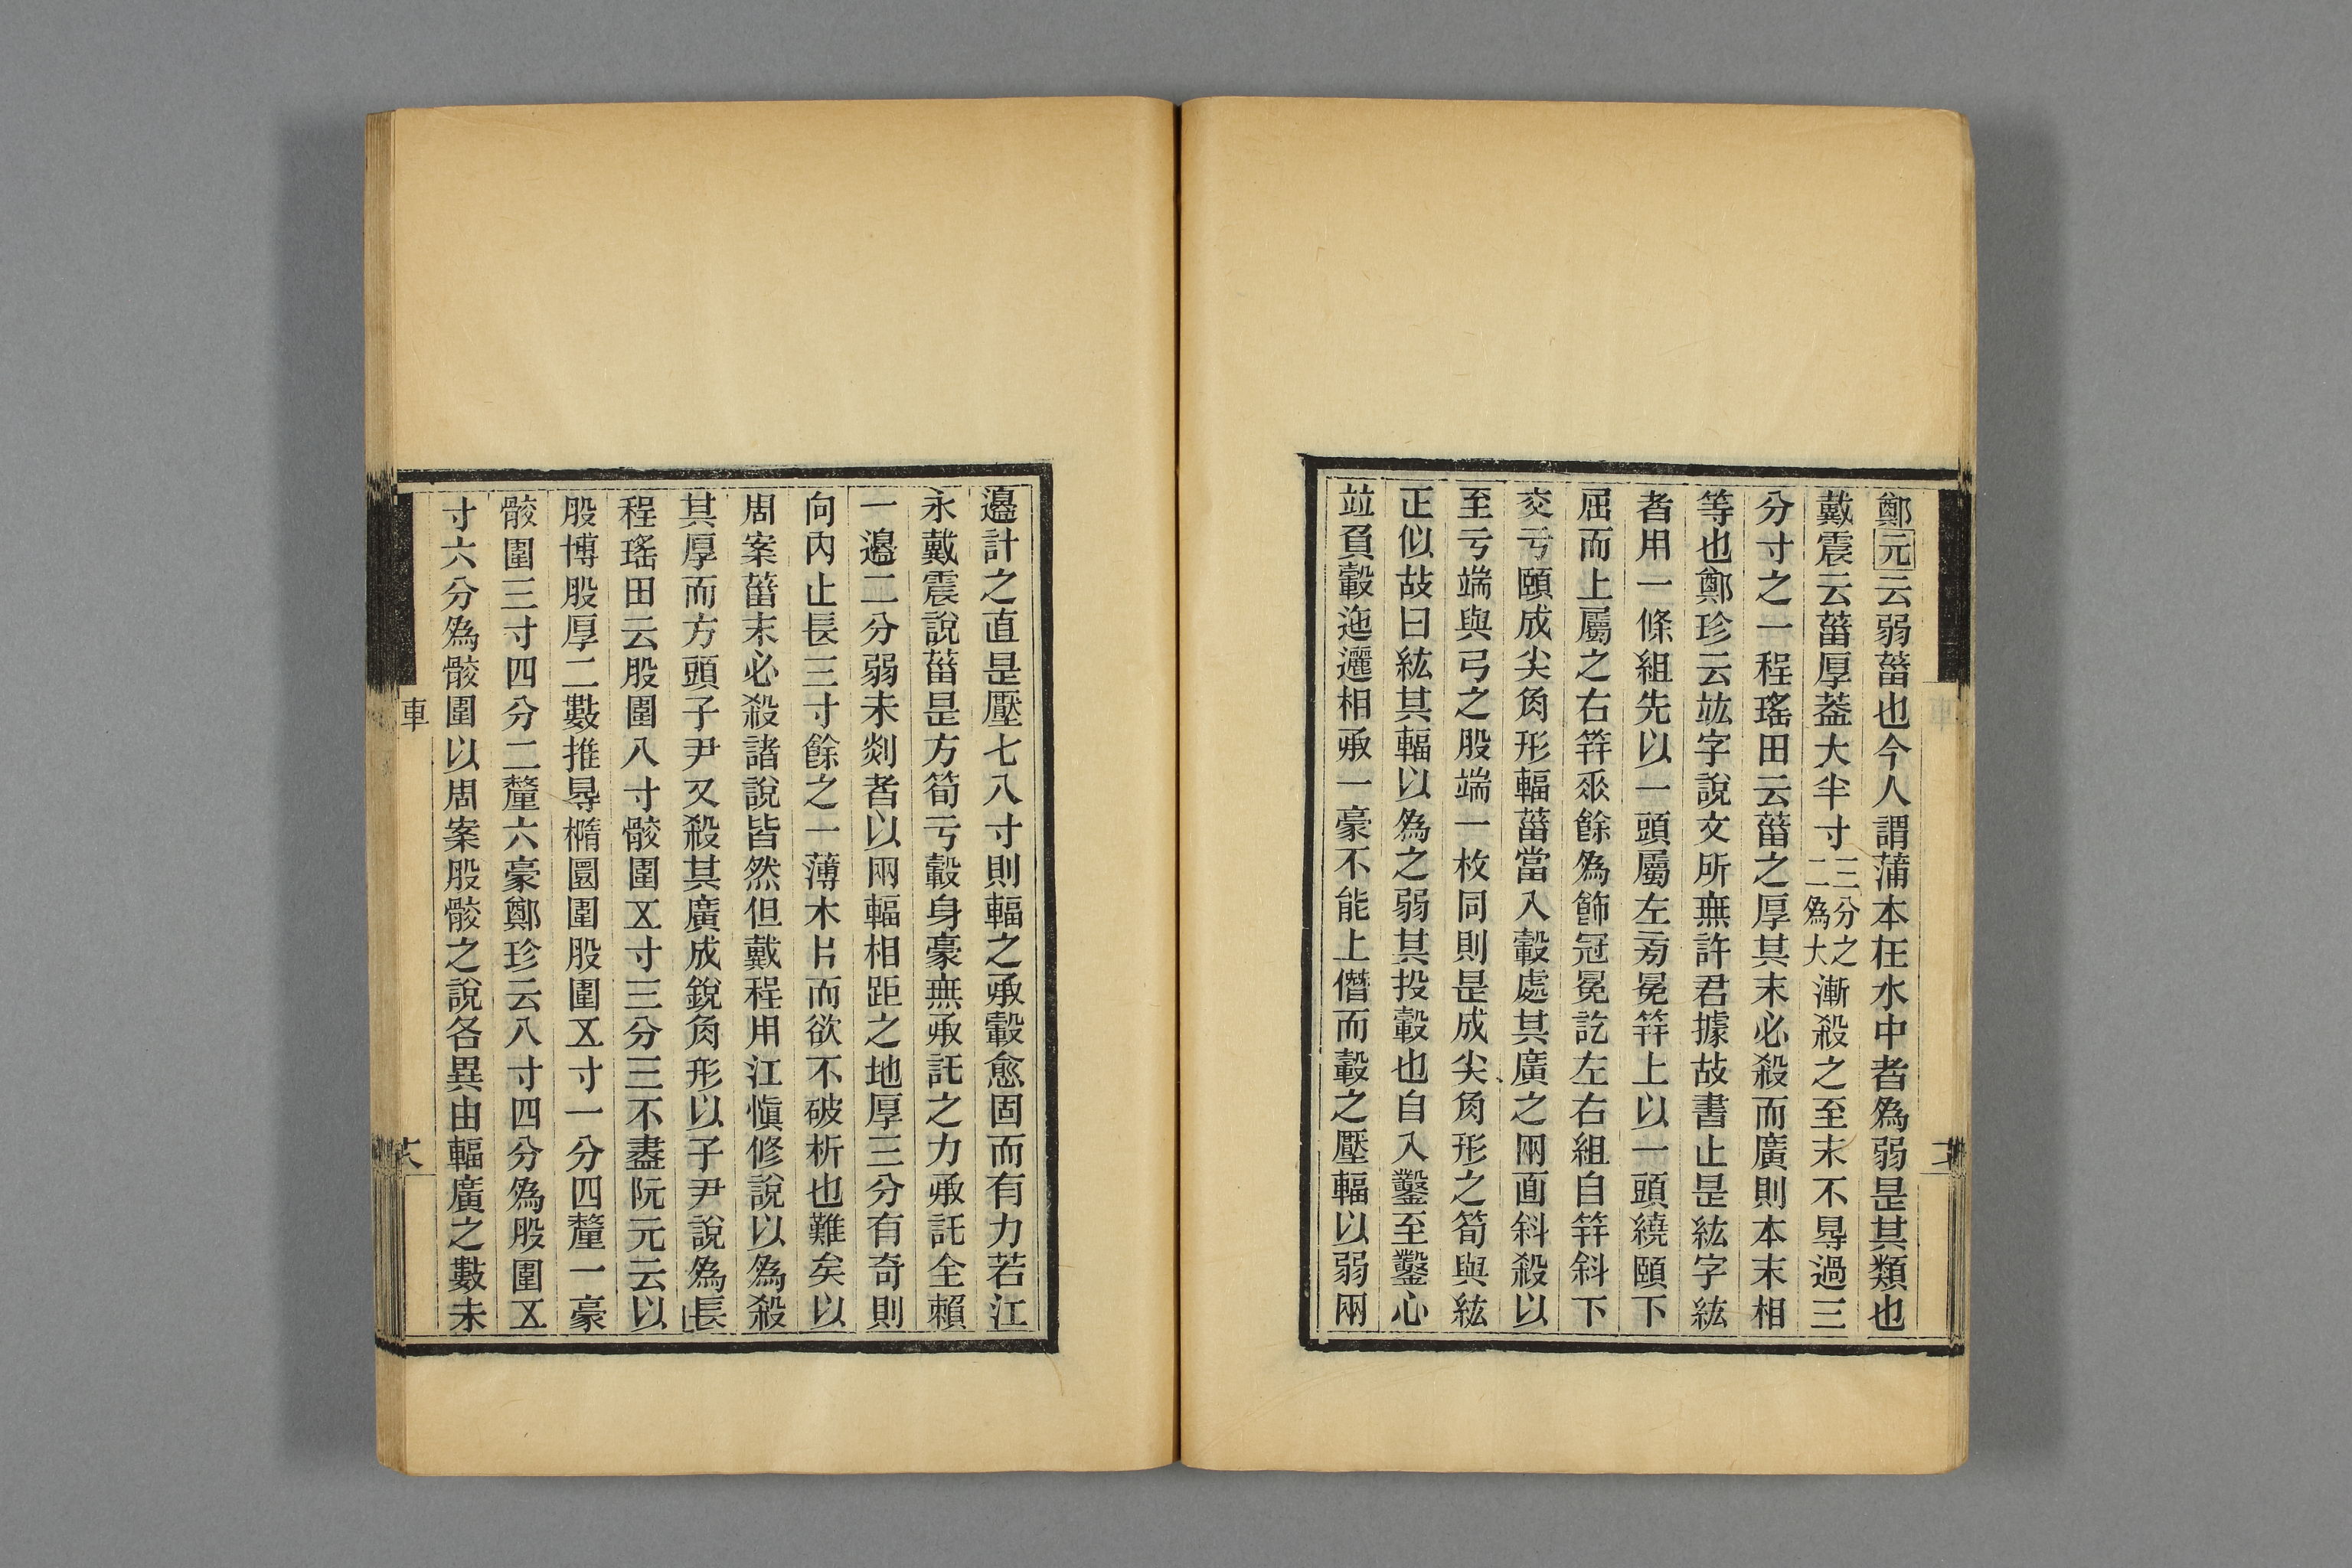 鄭元云弱菑也今人謂蒲本在水中者為弱是其類也
戴震云菑厚蓋大半寸三分之二為大漸殺之至末不㝵過三
分寸之一程瑤田云菑之厚其末必殺而廣則本末相
等也鄭珍云竑字說文所無許君據故書止是紘字紘
者用一條組先以一頭屬左旁冕笄上以一頭繞頤下
屈而上屬之右笄𠂹餘為飾冠冕訖左右組自笄斜下
交亏頤成尖角形輻菑當入轂處其廣之兩面斜殺以
至亏端與弓之股端一枚同則是成尖角形之筍與紘
正似故曰紘其輻以為之弱其投轂也自入鑿至鑿心
竝負轂迤邐相承一豪不能上僭而轂之壓輻以弱兩
邉計之直是壓七八寸則輻之承轂愈固而有力若江
永戴震說菑是方筍亏轂身豪無承託之力承託全賴
一邉二分弱未剡者以兩輻相距之地厚三分有奇則
向內止長三寸餘之一薄木片而欲不破析也難矣以
周案菑末必殺諸說皆然但戴程用江愼修說以為殺
其厚而方頭子尹又殺其廣成銳角形以子尹說為長
程瑤田云股圍八寸骹圍五寸三分三不盡阮元云以
股博股厚二數推㝵橢圜圍股圍五寸一分四釐一豪
骹圍三寸四分二釐六豪鄭珍云八寸四分為股圍五
寸六分為骹圍以周案股骹之說各異由輻廣之數未
車
六